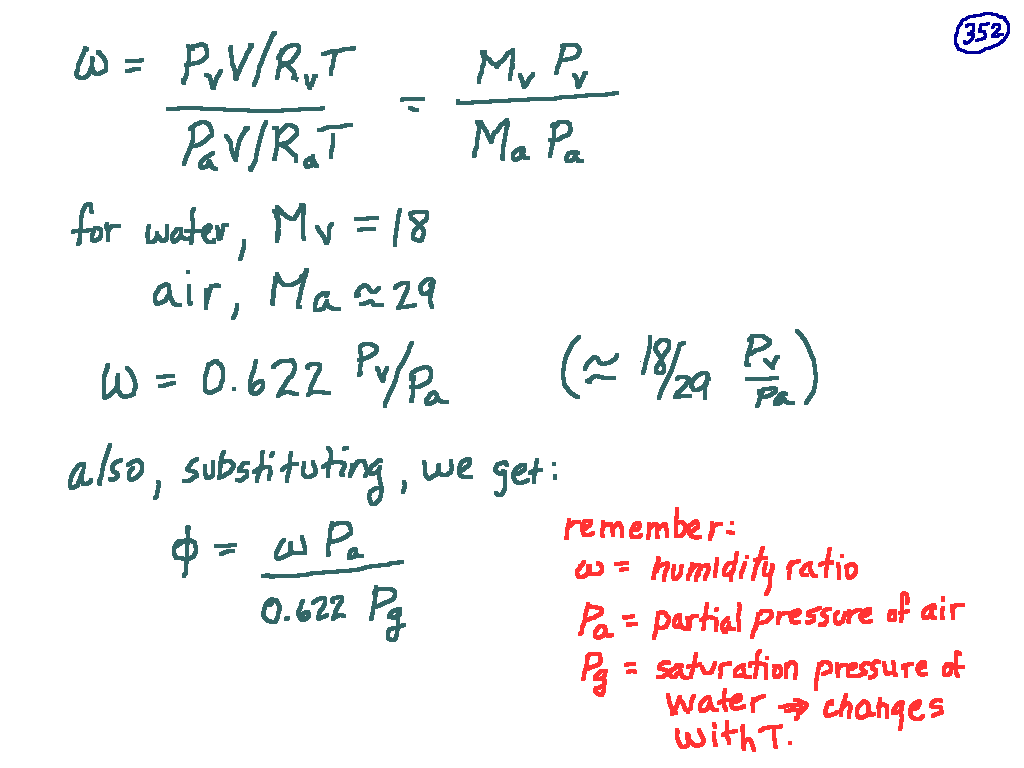 352
ω = PᵥV/RᵥT / PₐV/RₐT = Mᵥ Pᵥ / Mₐ Pₐ
for water, Mᵥ = 18
air, Mₐ ≃ 29
ω = 0.622 Pᵥ/Pₐ (≈ 18/29 Pᵥ/Pₐ)
also, substituting, we get:
ϕ = ω Pₐ / 0.622 P_g
remember:
ω = humidity ratio
Pₐ = partial pressure of air
P_g = saturation pressure of
water ⇒ changes
with T.